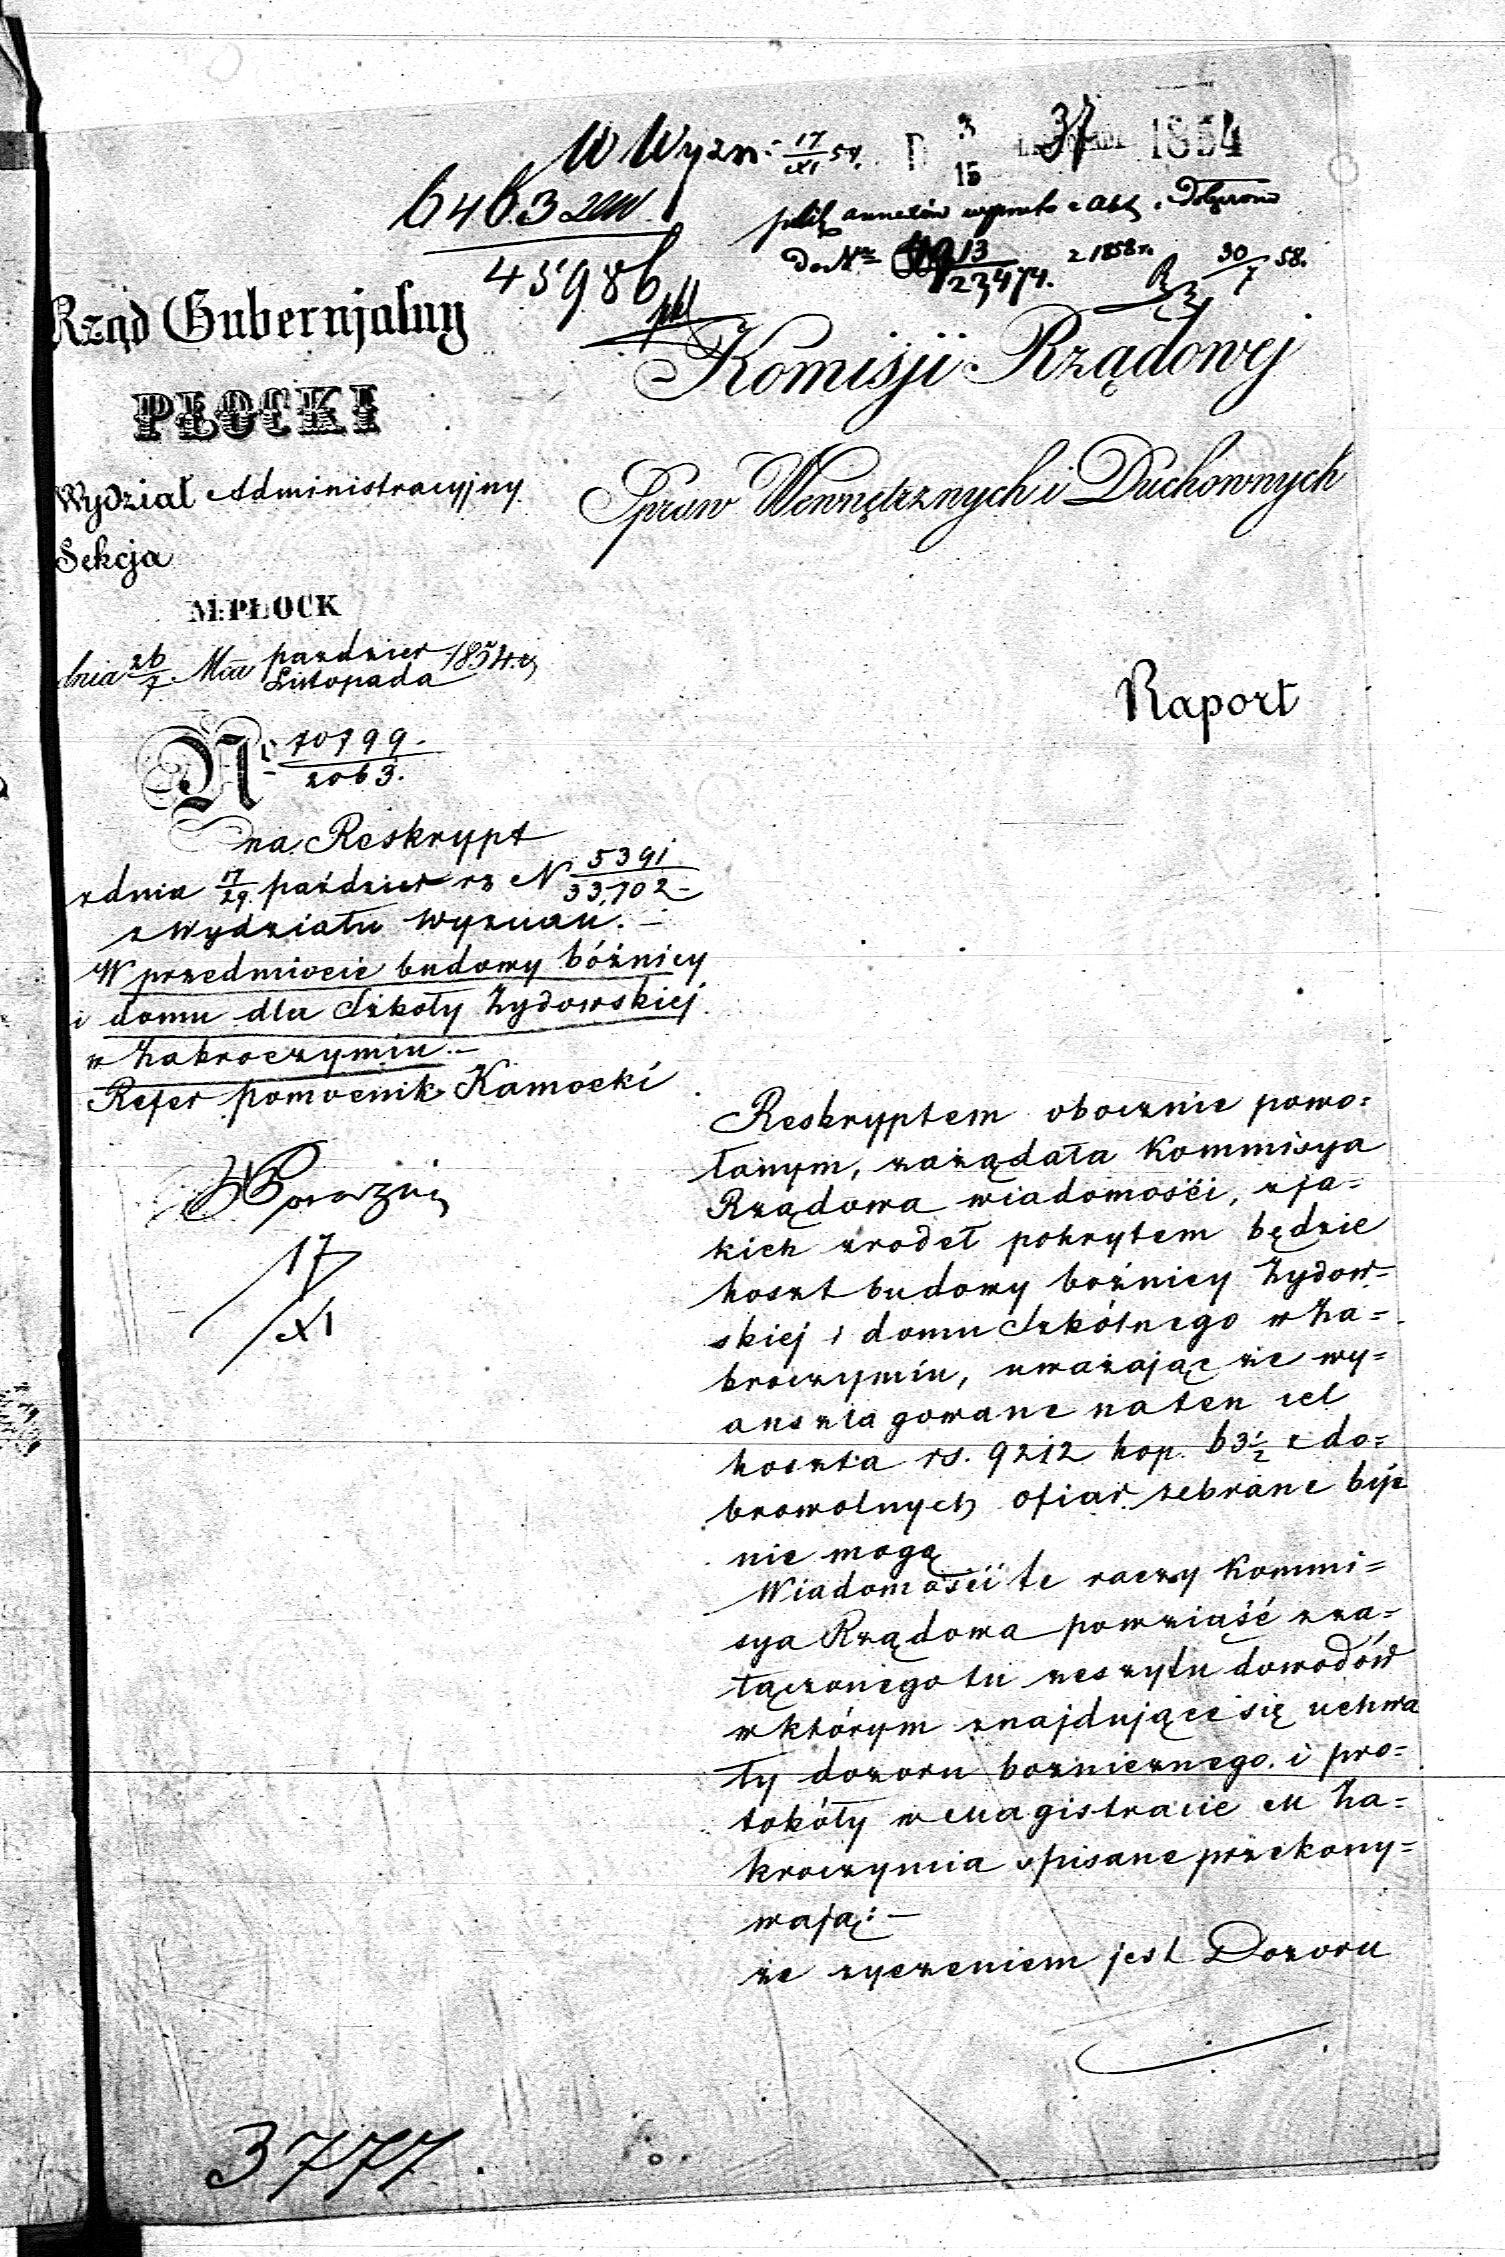 W Wyzn: 17/XI 54. D 3/15 37 1854
6463
45986
plik annexów z Akt dołączono
do Nr 13/23474. z 1858 r. 30/7 58.
Rząd Gubernjalny
PŁOCKI
Wydział Administracyjny
Sekcja
M. PŁOCK
dnia 26/7 Mca pazdzier/Listopada 1854 r.
No 70799/2063.
na Reskrypt
z dnia 17/29 paździer rb N 5391/33,702 -
z Wydziału Wyznań. -
W przedmiocie budowy bóżnicy
i domu dla Szkoły Żydowskiej
w Zakroczymiu. -
Refer pomocnik Kamocki
17
XI
Komisji Rządowej
Spraw Wewnętrznych i Duchownych
Raport
Reskryptem obocznie powo=
łanym, zażądała Kommisya
Rządowa wiadomości, z ja=
kich zrodeł pokrytem będzie
koszt budowy bożnicy Żydow=
skiej i domu Szkólnego w Za=
kroczymiu, uważając że wy=
anszlagowane na ten cel
koszta rs. 9212 kop. 63 1/2 z do=
browolnych ofiar zebrane być
nie mogą
Wiadomości te raczy Kommi=
sya Rządowa powziąść z za=
łączonego tu zeszytu dowodów
w którym znajdujące się uchwa
ły dozoru boznicznego i pro=
tokóły w Magistracie M Za=
kroczymia spisane przekony=
wają: -
że życzeniem jest Dozoru
3777.